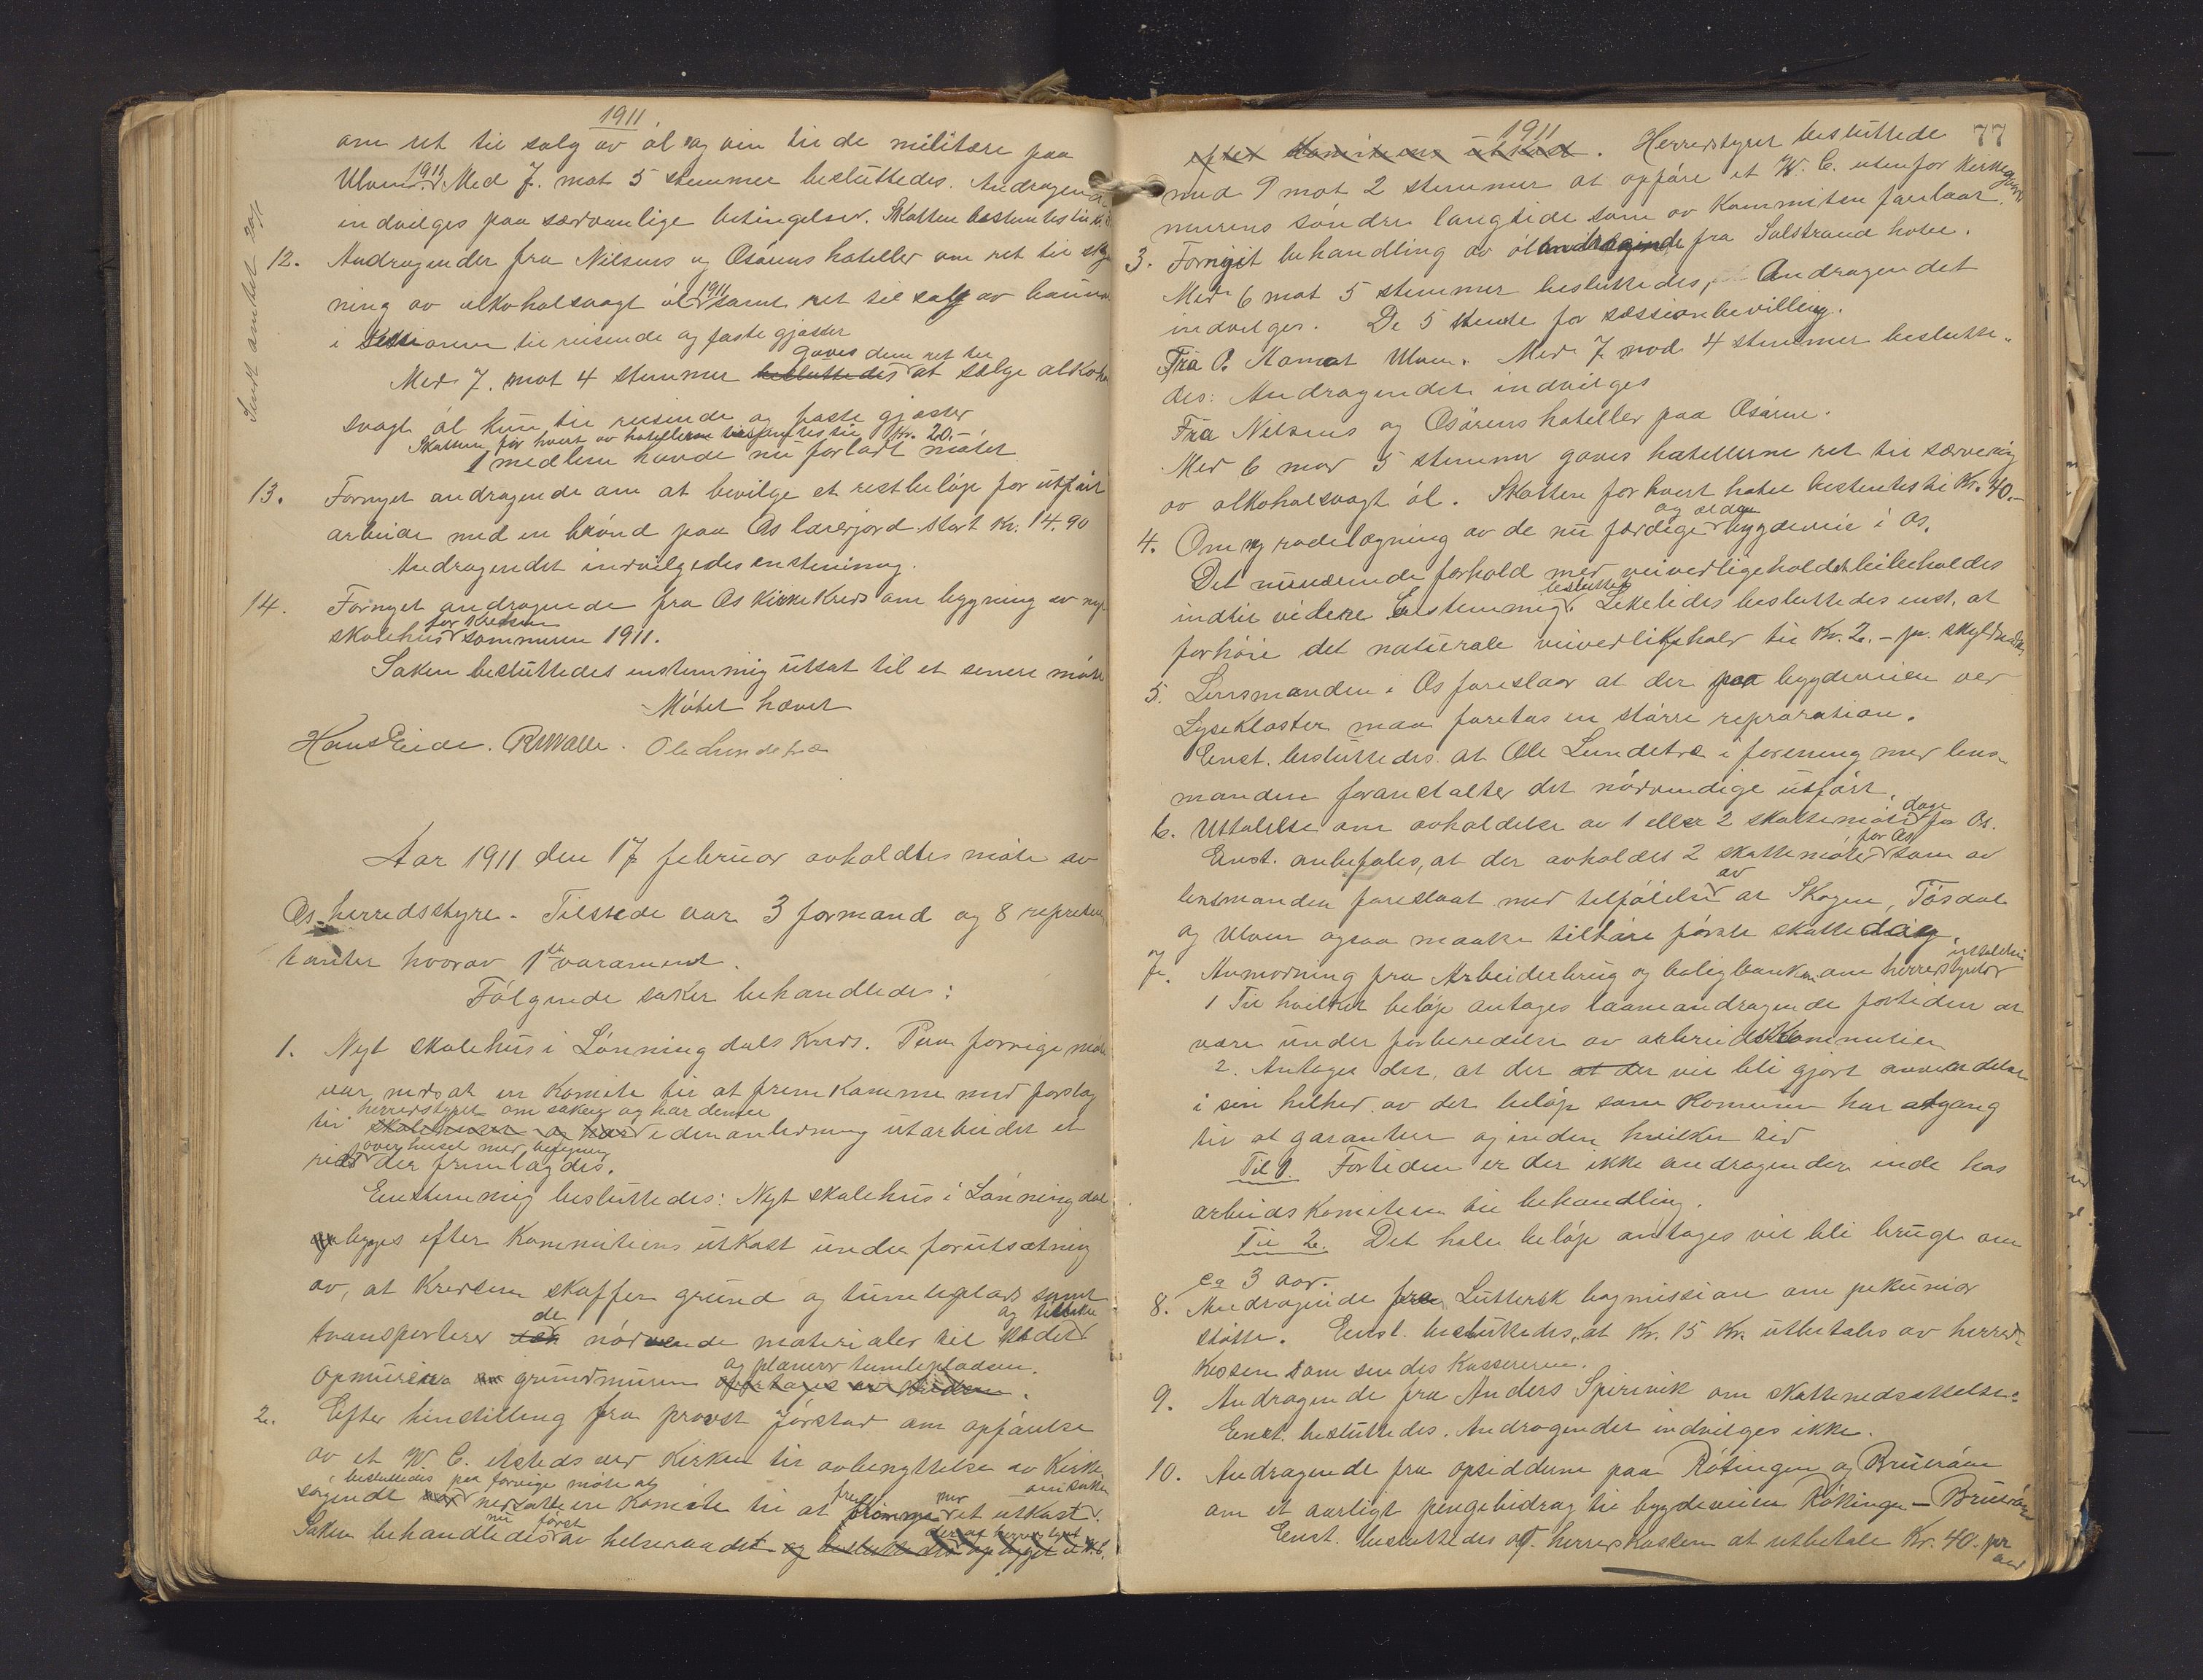 1911.
om ret til salg av øl og vin til de militære paa
Ulven 1911 Med 7. mot 5 stemmer besluttedes. Andragende
indvilges paa sædvanlige betingelser. Skatten bestemtes til
12. Andragender fra Nilsens og Osørens hoteller om ret til skjæn
ning av alkoholsvagt øl 1911 samt ret til salg av
i sessionen til reisende og faste gjæster
gaves dem ret til
Med 7. mot 4 stemmer besluttedes at sælge alkohol
svagt øl kun til reisende og faste gjæster
Skatten for hvert av hotellerne til Kr. 20.-
1 medlem havde nu forladt møtet
13. Fornyet andragende om at bevilge et restbeløp for utført
arbeide med en brønd paa Os lærerjord stort Kr. 14.90
Andragendet indvilgedes enstemmig.
14. Fornyet andragende fra Os Kirkekreds om bygning av nyt
for Kredsen
skolehus sommeren 1911.
Saken besluttedes enstemmig utsat til et senere møte
Møtet hævet
Hans Eide. RNValle. Ole Lundetræ
Sendt amtet
Aar 1911 den 17 februar avholdtes møte av
Os herredsstyre. Tilstede var 3 formænd og 8 repræsen
tanter hvorav 1 varamand.
Følgende saker behandledes:
1. Nyt skolehus i Lønningdals Kreds. Paa forrige møte
var nedsat en Komite til at fremkomme med forslag
herredstyret om saken og har denne
til skolehuset og har i den anledning utarbeidet et
over huset med
rids der fremlagdes.
Enstemmig besluttedes: Nyt skolehus i Lønningdal
bygges efter Kommiteens utkast under forutsætning
av, at Kredsen skaffer grund og tumleplads samt
de og tillike
transporterer nødvende materialer til stedet
og planerer tumlepladsen.
opmurer grundmuren overtages av Kredsen.
2. Efter henstilling fra provst Jørstad om opførelse
av et W. C. etsteds ved Kirken til avbenyttelse av Kirke
besluttedes paa forrige møte at om saken
søgende nedsætte en Komite til at fremkomme med et utkast
nu først
Saken behandledes av helseraadet og besluttedes
1911 77
efter Komiteens utkast. Herredstyret besluttede
med 9 mot 2 stemmer at opføre et W. C. utenfor Kirkegaards
murens søndre langside som av Kommiteen foreslaat.
3. Fornyet behandling av ølandragende fra Solstrand hotel.
Med 6 mot 5 stemmer besluttedes, Andragendet
indvilges. De 5 stemte for sæssionbevilling.
Fra O. Hamar Ulven. Med 7 mod 4 stemmer beslutte-
des: Andragendet indvilges
Fra Nilsens og Osørens hoteller paa Osøren.
Med 6 mod 5 stemmer gaves hotellerne ret til servering
av alkoholsvagt øl. Skatten for hvert hotel bestemtes til Kr. 40.-
og ældre
4. Om ny rodelægning av de nu færdige bygdeveie i Os.
Det nuværende forhold med veivedligeholdet beibeholdes
besluttes
indtil videre Enstemmig. Likeledes besluttedes enst. at
forhøie det naturale veivedlikehold til Kr. 2.- pr. skyldmark
5. Lensmanden i Os foreslaar at der paa bygdeveien ved
Lysekloster maa foretas en større repraration.
Enst. besluttedes at Ole Lundetræ i forening med lens-
manden foranstalter det nødvendige utført.
dage
6. Uttalelse om avholdelse av 1 eller 2 skattemøte for Os.
for Os
Enst. anbefales, at der avholdes 2 skattemøter som av
av
lensmanden foreslaat med tilføielse at Skogen, Tøsdal
og Ulven ogsaa maatte tilhøre første skattedag
uttalelse
7. Anmodning fra Arbeiderbruk og boligbanken om herredstyrets
1 Til hvilket beløp antages laanandragende fortiden at
være under forberedelse av arbeidskommiteen
2. Antages det, at der at der vil bli gjort anvendelse
i sin helhed av det beløp som Komunen har adgang
til at garantere og inden hvilken tid
Til 1 Fortiden er der ikke andragender inde hos
arbeidskomiteen til behandling.
Til 2. Det hele beløp antages vil bli brugt om
ca 3 aar.
8. Andragende fra Luthersk bogmission om pekuniær
støtte. Enst. besluttedes, at Kr. 15 Kr. utbetales av herreds-
kassen som sendes Kassereren.
9. Andragende fra Anders Spirivik om skattenedsættelse.
Enst. besluttedes. Andragendet indvilges ikke.
10. Andragende fra opsidderne paa Røtingen og Bruerøen
om et aarligt pengebidrag til bygdeveien Røtingen - Bruerøen
Enst. besluttedes af herredskassen at utbetale Kr. 40. pr
aar